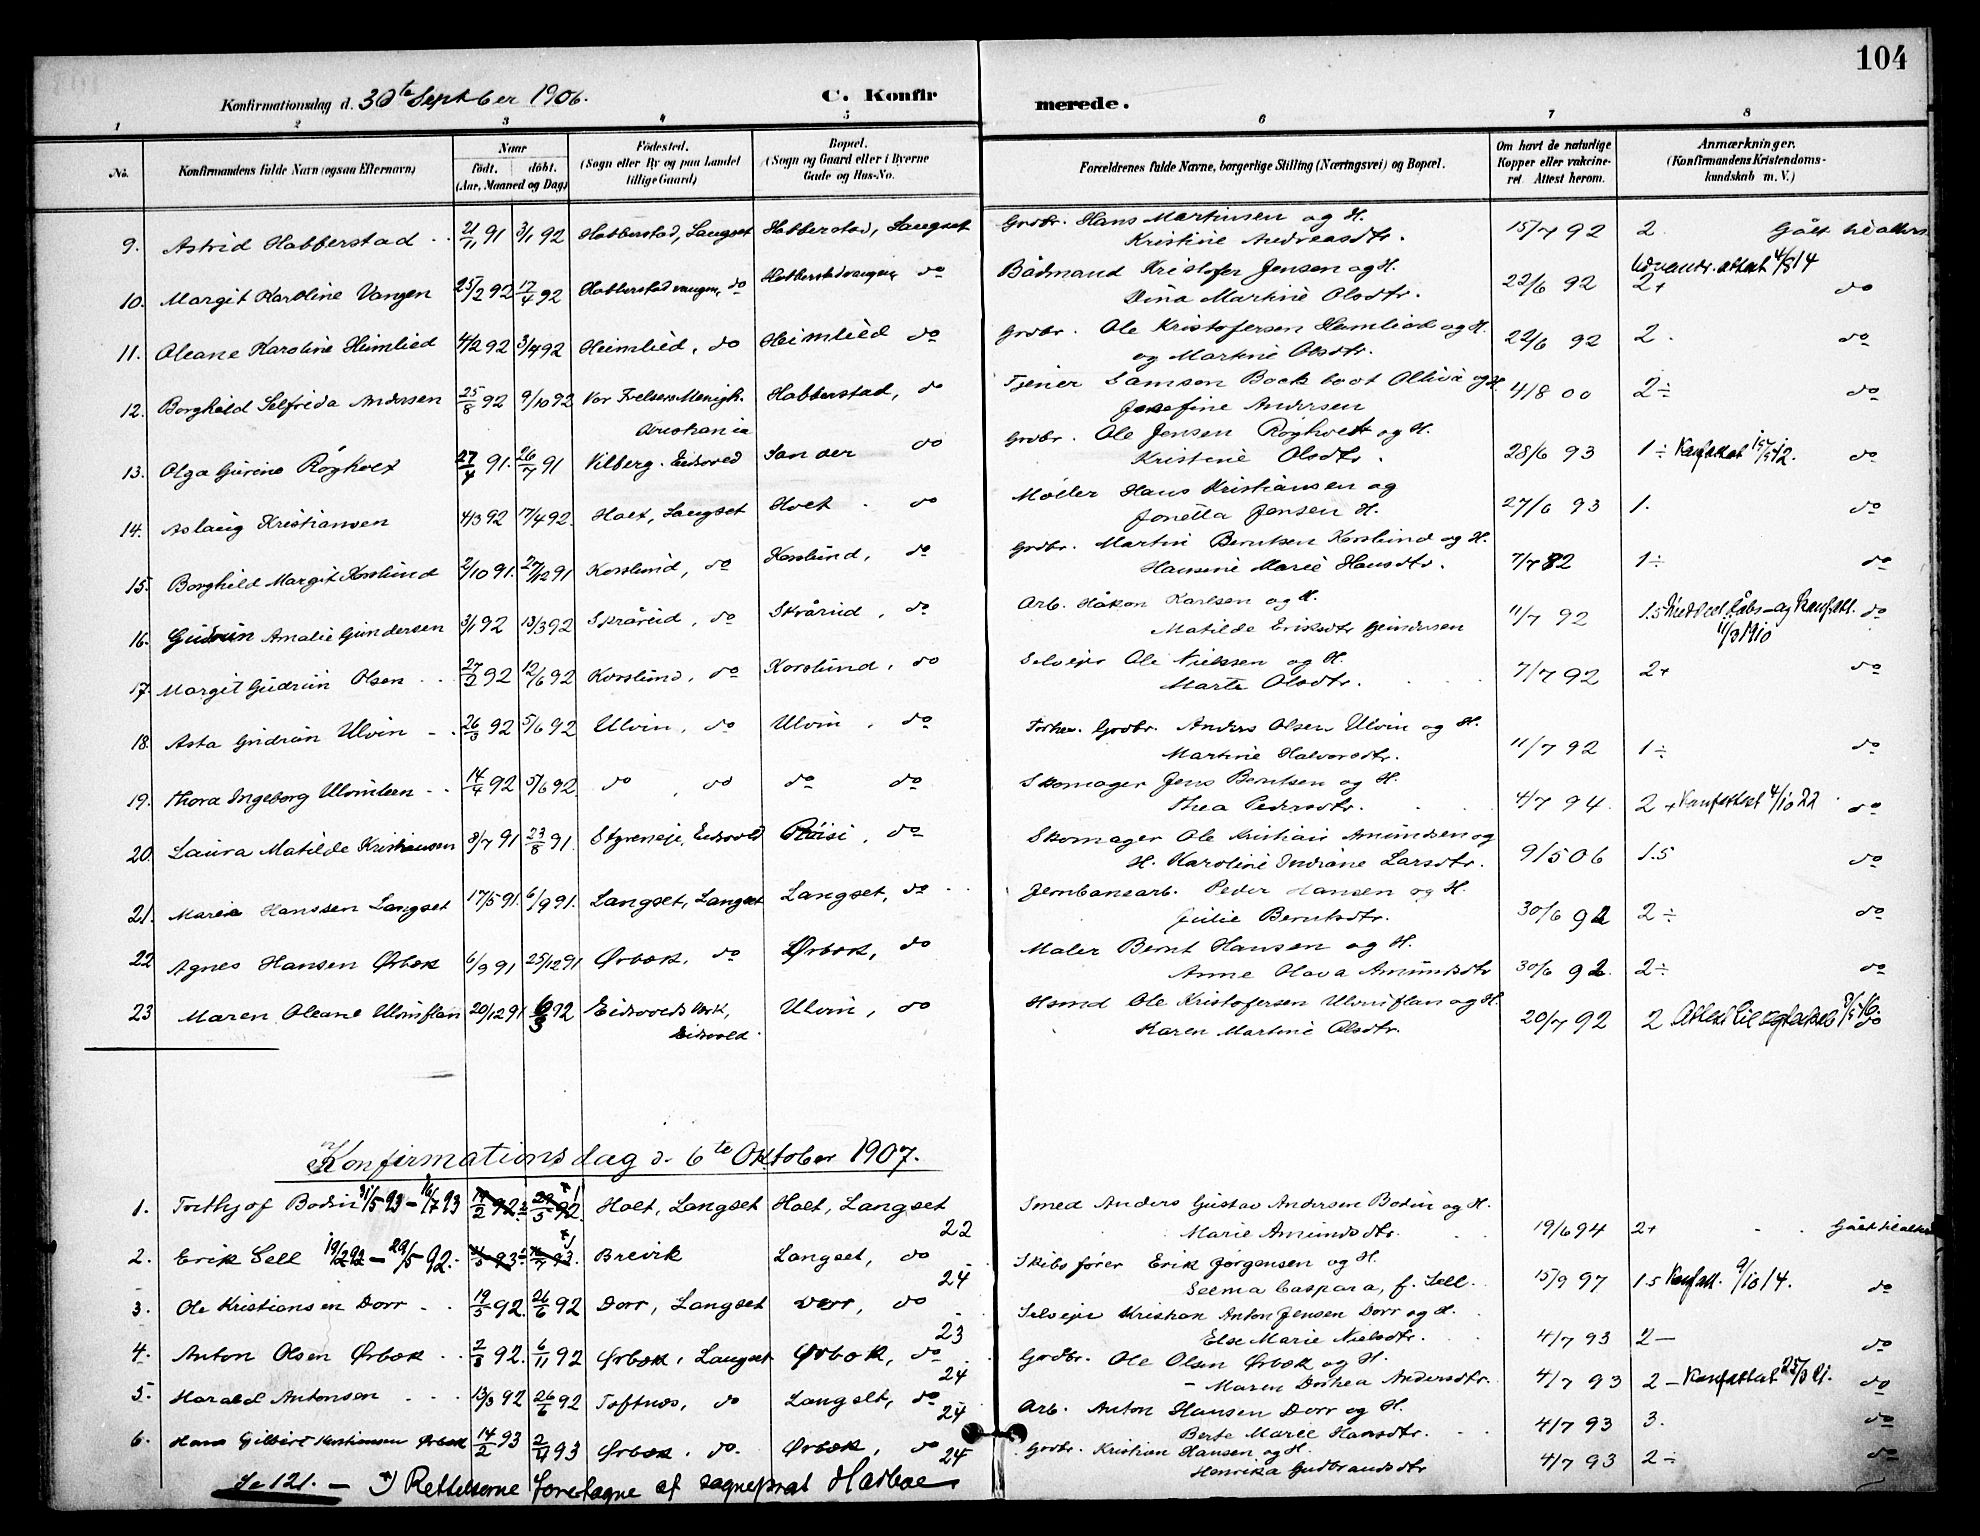 104
Konfirmationsdag d. 30te September 1906.
C. Konfirmerede.
1 2 3 4 5 6 7 8
No. Konfirmandens fulde Navn (ogsaa Efternavn) Naar født. døbt. (Aar, Maaned og Dag) Fødested. (Sogn eller By og paa Landet tillige Gaard) Bopæl. (Sogn og Gaard eller i Byerne Gade og Hus-No. Forældrenes fulde Navne, borgerlige Stilling (Næringsvei) og Bopæl. Om havt de naturlige Kopper eller vakcineret. Attest herom. Anmærkninger. (Konfirmandens Kristendomskundskab m. V.)
9. Astrid Habberstad 21/11 91 3/1 92 Habberstad, Langset Habberstad, Langset Grdbr. Hans Martinsen og H. Kristine Andreasdtr. 15/7 92 2 Gået til alters
10. Margit Karoline Vangen 25/2 92 17/4 92 Habberstadvangen, do Habberstadvangen do Bådmand Kristofer Jensen og H. Dina Martine Olsdtr. 22/6 92 Udvandr. attest 4/8 14 2+ do
11. Oleane Karoline Heimlied 4/2 92 3/4 92 Heimlied, do Heimlied do Grdbr. Ole Kristofersen Hemliod og H. og Martine Olsdtr. 22/6 92 2. do
12. Borghild Selfrida Andersen 25/8 92 9/10 92 Vor Frelsers Menigh. Kristiania Habberstad, do Tjener Samson og H. Josefine Andersen 4/8 00 2÷ do
13. Olga Gurine Røgholt 27/4 91. 26/7 91 Vilberg. Eidsvold Sander do Grdbr. Ole Jensen Røgholt og H. Kristine Olsdtr. 28/6 93 1÷ Konfattest 15/5 12. do
14. Aslaug Kristiansen 4/3 92 17/4 92. Holt, Langset Holt do Møller Hans Kristiansen og Jonetta Jensen H. 27/6 93 1. do
15. Borghild Margit Korslund 2/10 91. 27/12 91 Korslund, do Korslund, do Grdbr. Martin Berntsen Korslund og H. Hansine Marie Hansdtr. 7/7 82 1÷ do
16. Gudrun Amalie Gundersen 3/1 92 13/3 92 Skrårud, do Skrårud, do Arb. Håkon Karlsen og H. Matilde Eriksdtr Gundersen 11/7 92 1.5 Meddelt Dåbs- og Konfatt. 11/3 1910 do
17. Margit Gudrun Olsen 27/2 92 12/6 92 Korslund, do Korslund, do Selveier Ole Nielssen og H. Marte Olsdtr. 7/7 92 2+ do
18. Asta Gudrun Ulvin 26/3 92 5/6 92 Ulvin, do Ulvin, do Forhen. Grdbr. Anders Olsen Ulvin og H. Martine Halvorsdtr. 11/7 92 1÷ do
19. Thora Ingeborg Ulvinleen 14/4 92 5/6 92 do do do do Skomager Jens Berntsen og H. Thea Pedersdtr. 4/7 94. 2+ Konfattest 4/10 22 do
20. Laura Matilde Kristiansen 3/7 91 23/8 91. Styreneje, Eidsvold Røisi, do Skomager Ole Kristian Amundsen og H. Karoline Indiane Larsdtr. 9/5 06 1.5 do
21. Maria Hanssen Langset 17/5 91. 6/9 91. Langset, Langset Langset, do Jernbanearb. Peder Hansen og H. Julie Berntsdtr. 30/6 92 2÷ do
22 Agnes Hansen Ørbæk 6/9 91 25/12 91 Ørbæk, do Ørbæk, do Maler Bernt Hansen og H. Anne Olava Amundsdtr 30/6 92. 2÷ do
23 Maren Oleane Ulvinflan 20/12 91 6/3 92 Eidsvolds Værk, Eidsvold. Ulvin, do Hsmd Ole Kristofersen Ulvinflan og H. Karen Martine Olsdtr. 20/7 92 2 Attest til do
Konfirmationsdag d. 6te Oktober 1907.
1. Frithjof Bodin 31/5 93 – 16/7 93 14/2 92. 29/5 92. Holt, Langset Holt, Langset 22 Smed Anders Gustav Andersen Bodin og H. Marie Amundsdtr. 19/6 94 2+ Gået til alters
2. Erik Sell 19/2 92 – 29/5 92. 31/5 93 16/7 93. Brevik Langset, do 24 Skibsfører Erik Jørgensen og H. Selma Caspara, f. Sell. 15/9 97 1.5 Konfatt. 9/10 14. do
3. Ole Kristiansen Dorr 19/5 92. 26/6 92 Dorr, Langset Dorr, do 23 Selveier Kristian Anton Jensen Dorr og H. Else Marie Nielsdtr. 4/7 93 2— do
4. Anton Olsen Ørbæk 2/8 92. 6/11 92 Ørbæk, Langset Ørbæk, do 24 Grdbr. Ole Olsen Ørbæk og H. Maren Dorthea Andersdtr. 4/7 93 2— Konfattest 25/3 21. do
5. Harald Antonsen 13/3 92 26/6 92 Toftnes, do Langset, do 24 Arb. Anton Hansen Dorr og H. Berte Marie Hansdtr. 4/7 93 3. do
6. Hans Gilbert Kristiansen Ørbæk 14/2 93 2/4 93 Ørbæk, do. Ørbæk, do 24 Grdbr. Kristian Hansen og H. Henrika Gudbrandsdtr 4/7 93 2÷ do
Se 121. – x) Rettelserne foretagne af sogneprst Hasboe